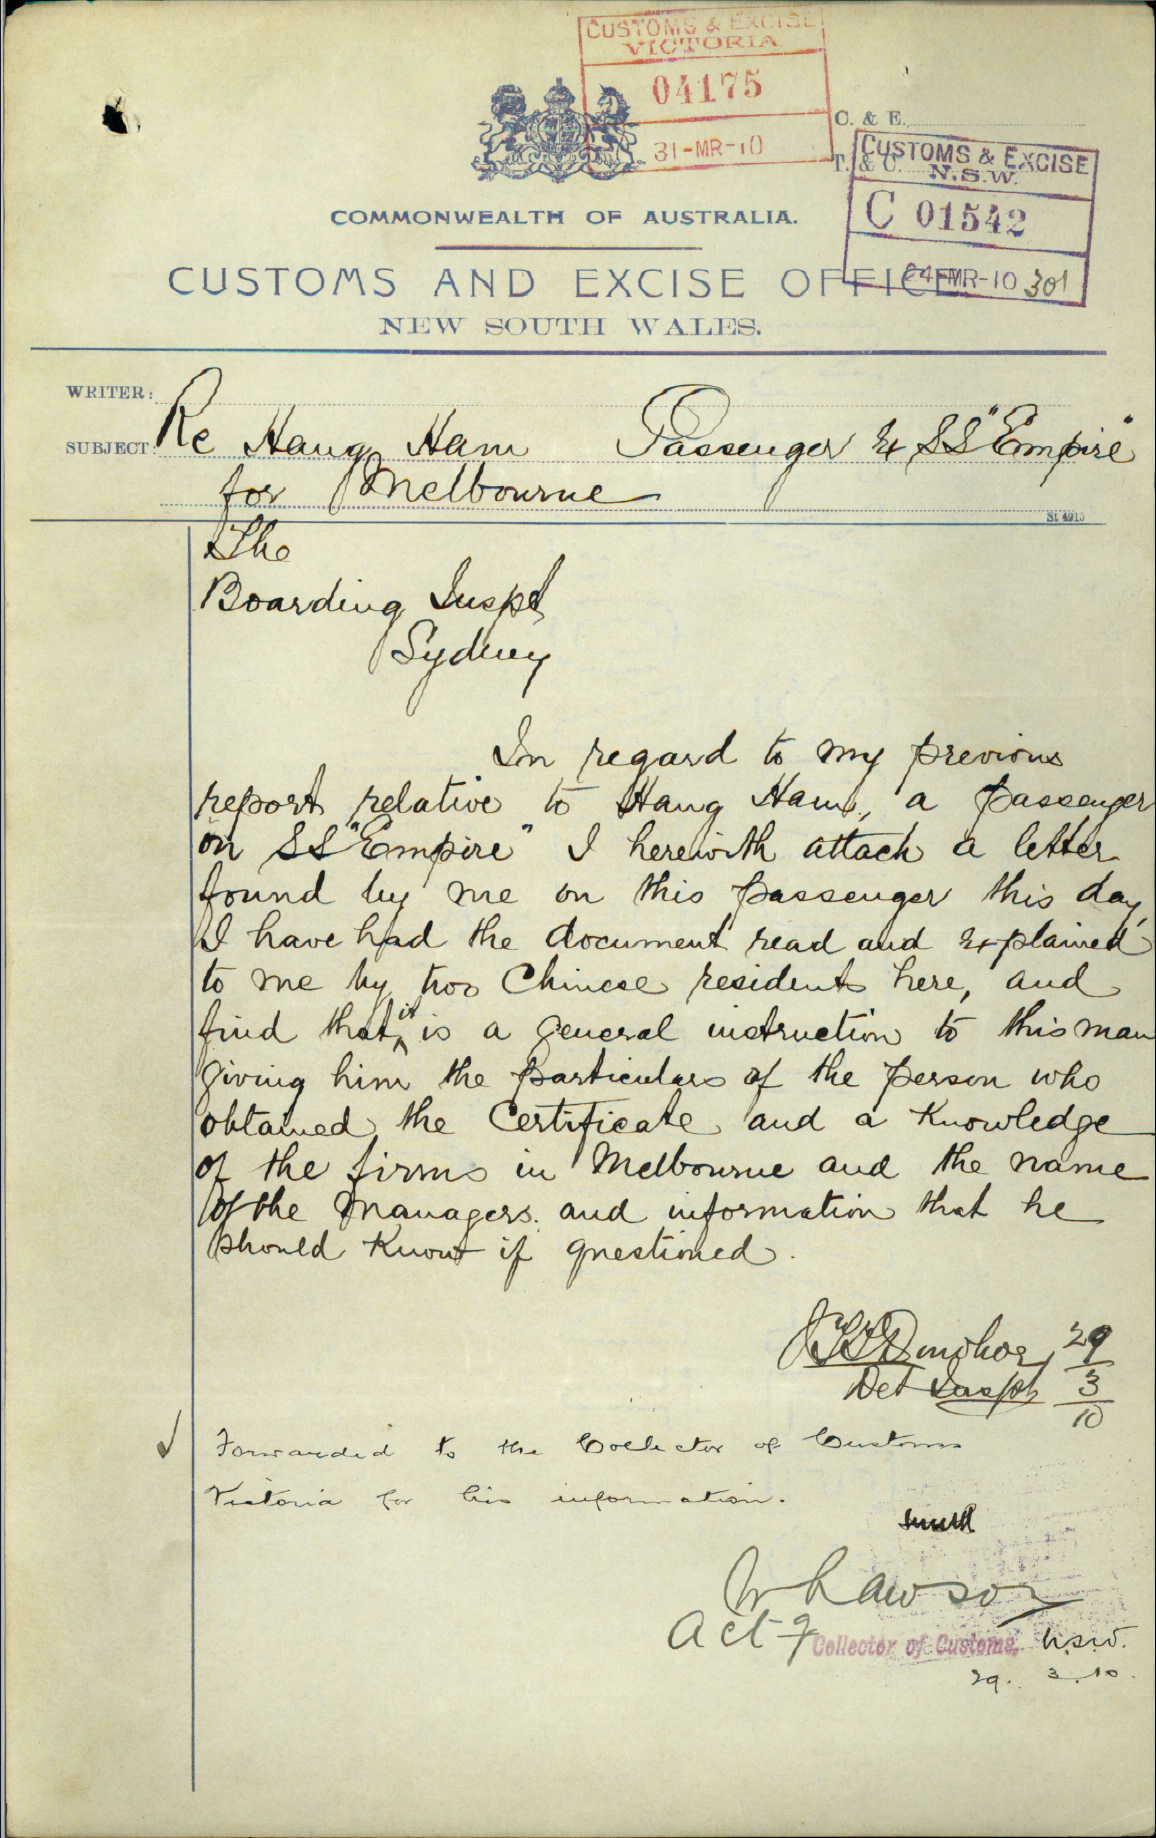 CUSTOMS & EXCISE
VICTORIA
04175
31-MR-10
C. & E.
T. & C.
CUSTOMS & EXCISE
N.S.W.
C 01542
24-MR-10 301
COMMONWEALTH OF AUSTRALIA.
CUSTOMS AND EXCISE OFFICE
NEW SOUTH WALES.
WRITER:
SUBJECT: Re Hang Ham Passenger Ex SS "Empire"
for Melbourne
St 4910
The
Boarding Inspt
Sydney
In regard to my previous
report relative to Hang Ham, a passenger
on SS "Empire" I herewith attach a letter
found by me on this passenger this day,
I have had the document read and explained
to me by two Chinese residents here, and
find that it is a general instruction to this man
giving him the particulars of the person who
obtained the Certificate and a Knowledge
of the firms in Melbourne and the name
of the Managers and information that he
should Know if questioned.
Donohoe 29
Det Inspt 3
10
✓ Forwarded to the Collector of Customs
Victoria for his information.
W h Lawson
Actg Collector of Customs, N.S.W.
29. 3. 10.